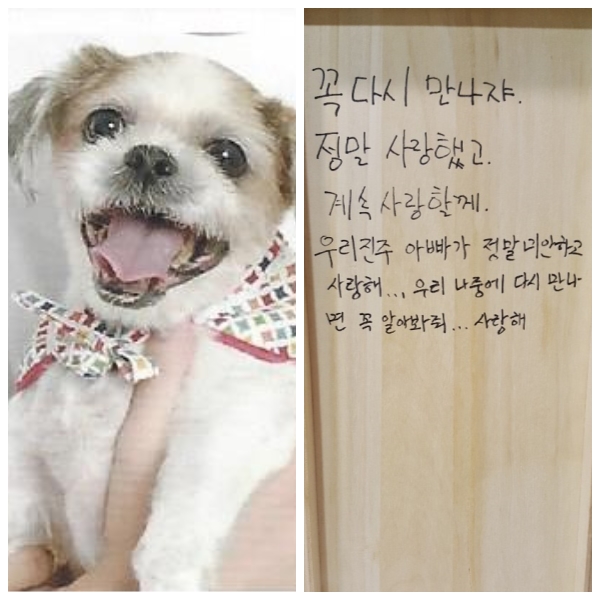 꼭 다시 만나쟈.
정말 사랑했고.
계속 사랑할께.
우리진주 아빠가 정말 미안하고
사랑해..., 우리 나중에 다시 만나
면 꼭 알아봐줘... 사랑해